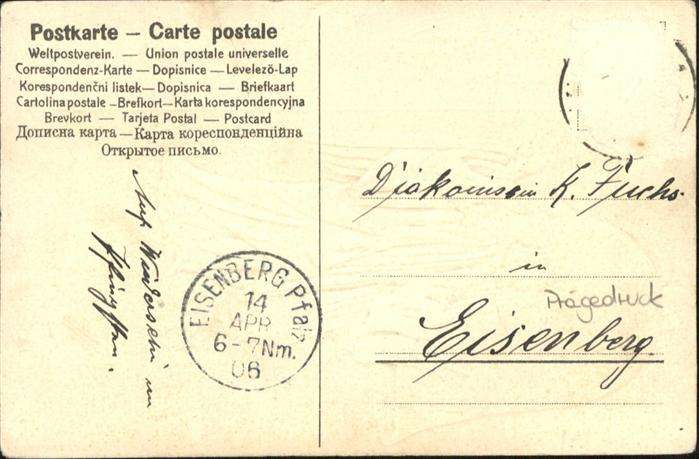 Postkarte — Carte postale
Weltpostverein. — Union postale universelle
Correspondenz-Karte — Dopisnice — Levelező-Lap
Korespondenční listek — Dopisnica — Briefkaart
Cartolina postale — Brefkort — Karta korespondencyjna
Brevkort — Tarjeta Postal — Postcard
Дописна карта — Карта кореспонденційна
Открытое письмо.
Auf Wiedersehn im
EISENBERG Pfalz
14
APR
6-7Nm.
06
Diakonissin K. Fuchs
in
Prägedruck
Eisenberg.